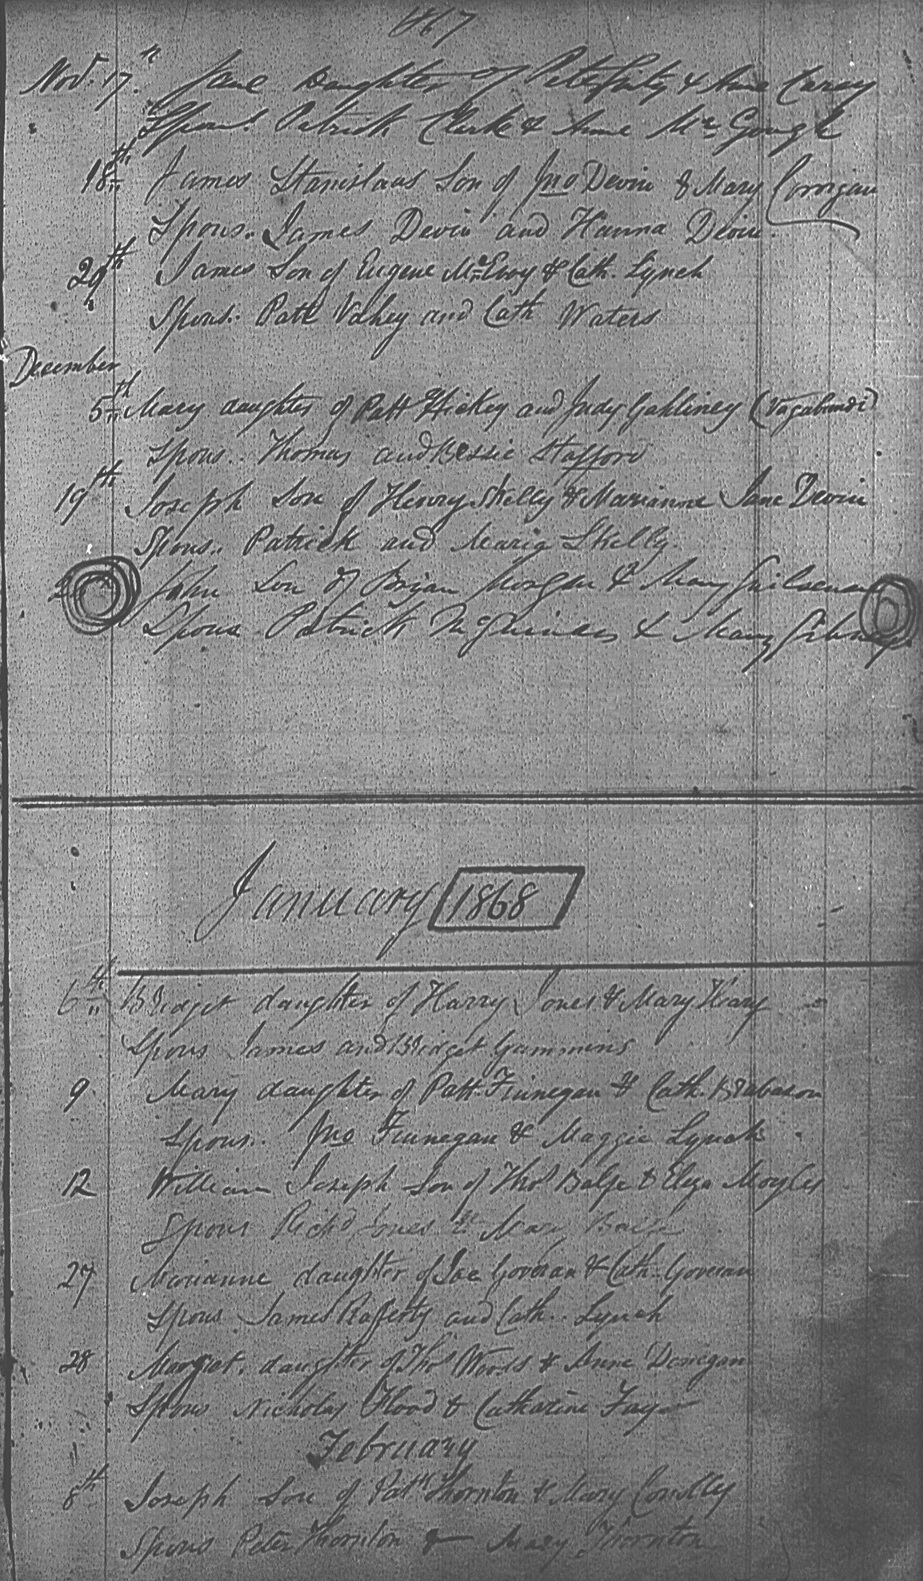 1867
Nov. 17th Jane Daughter of Peter & Anne Carey
Spons. Patrick Clerke & Anne Mc Gough
18th James Stanislaus Son of Jno Devin & Mary Corrigan
Spons. James Devin and Hanna Devin.
29th James Son of Eugene McEvoy & Cath. Lynch
Spons. Patt Vahey and Cath Waters
December
5th Mary daughter of Patt Hickey and Judy Gahliney (Vagabundi)
Spons. Thomas and Bessie Stafford
19th Joseph Son of Henry Skelly & Marianne Jane Devin
Spons. Patrick and Maria Skelly.
John Son of Bryan Morgan & Mary Gilsenan
Spons Patrick McGuinness & Mary Gibney
January 1868
6th Bridget daughter of Harry Jones & Mary Keary
Spons James and Bridget Gammins
9 Mary daughter of Patt. Finnegan & Cath. Brabason
Spons. Jno Finnegan & Maggie Lynch.
12 William Joseph Son of Thos Balfe & Eliza Moyles
Spons Richd Jones & Mary Balfe
27 Marianne daughter of Joe Goveran & Cath. Goveran
Spons James Rafferty and Cath. Lynch
28 Margat. daughter of Thos Woods & Anne Donegan
Spons Nicholas Flood & Catharine Fay
February
8th Joseph Son of Patt Thornton & Mary Conolly
Spons Peter Thornton & Mary Thornton